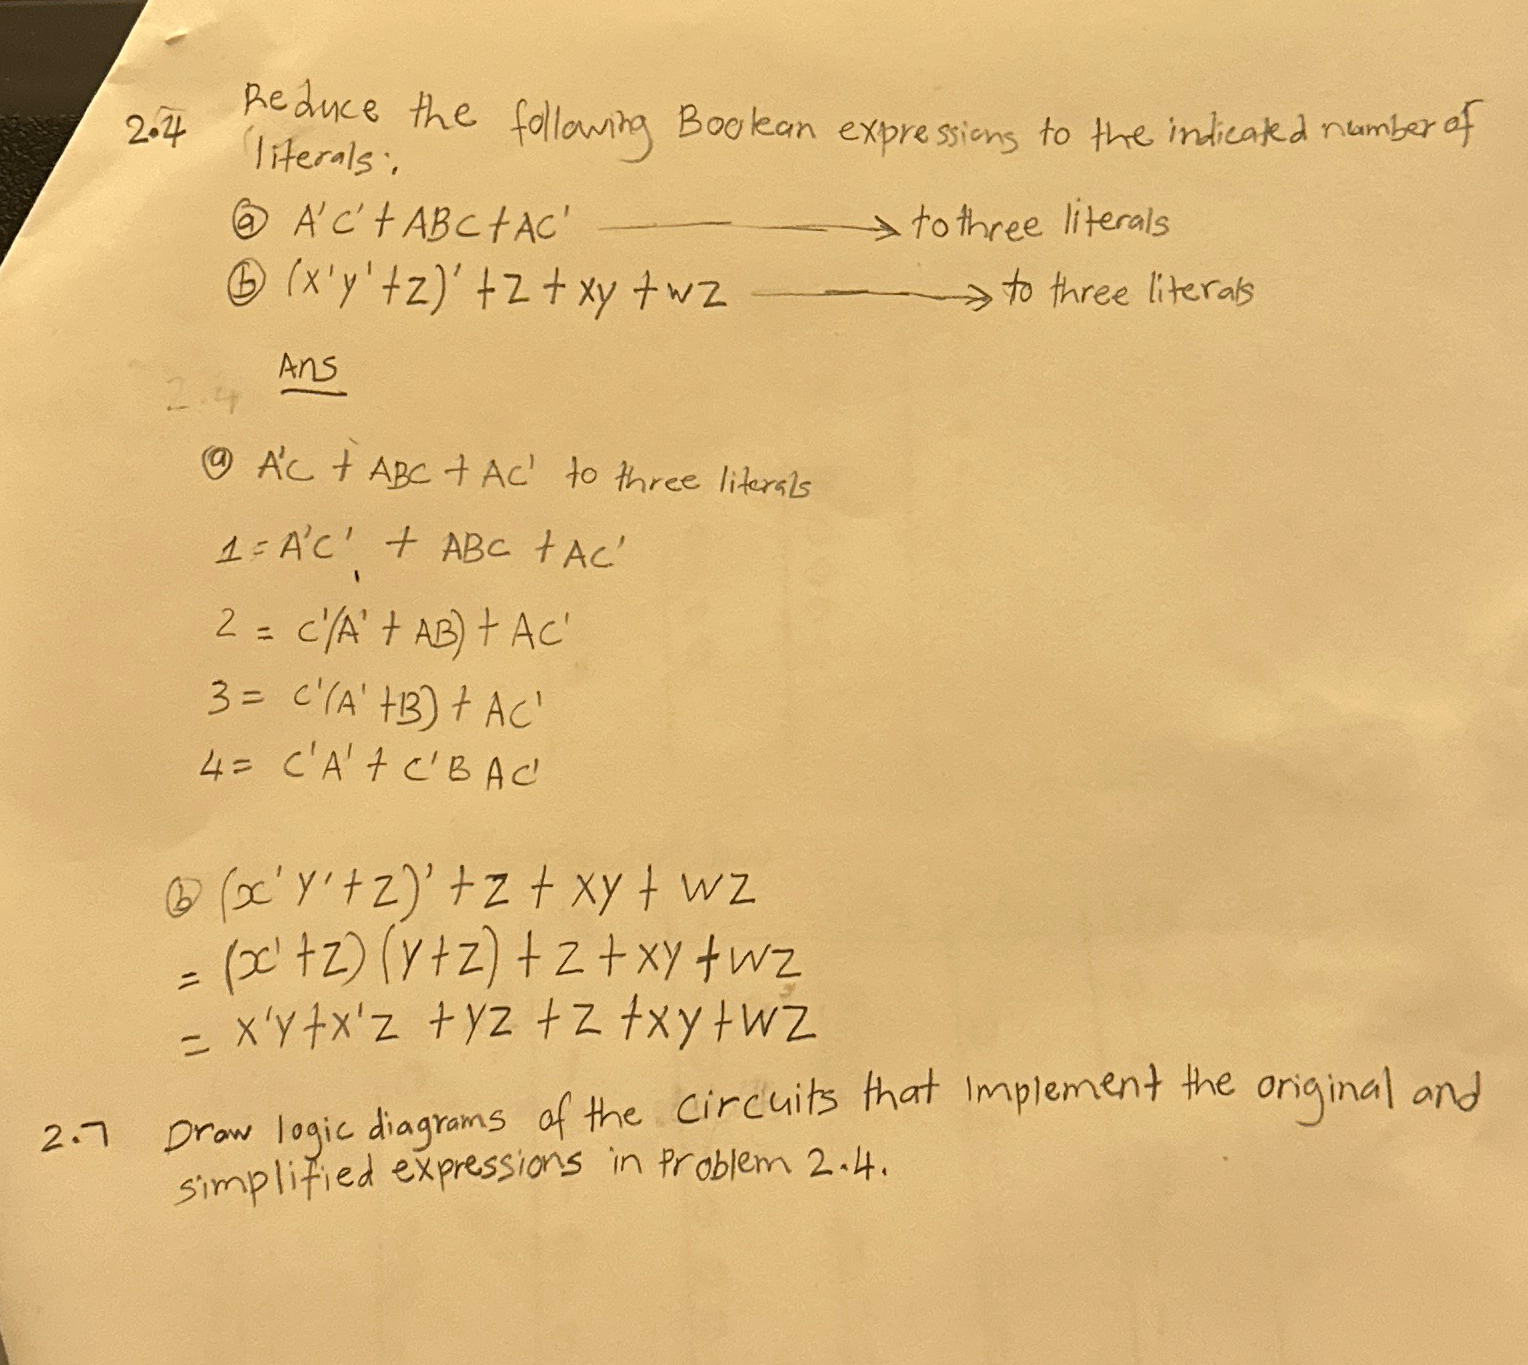 2.4 Reduce the following Boolean expressions to the indicated number of
literals:
ⓐ A'C' + ABC + AC' ⟶ to three literals
ⓑ (x'y' + z)' + z + xy + wz ⟶ to three literals
Ans
2.4
ⓐ A'C + ABC + AC' to three literals
1 = A'C' + ABC + AC'
2 = C'(A' + AB) + AC'
3 = C'(A' + B) + AC'
4 = C'A' + C'B AC'
ⓑ (x'y' + z)' + z + xy + wz
= (x' + z)(y + z) + z + xy + wz
= x'y + x'z + yz + z + xy + wz
2.7 Draw logic diagrams of the circuits that implement the original and
simplified expressions in Problem 2.4.